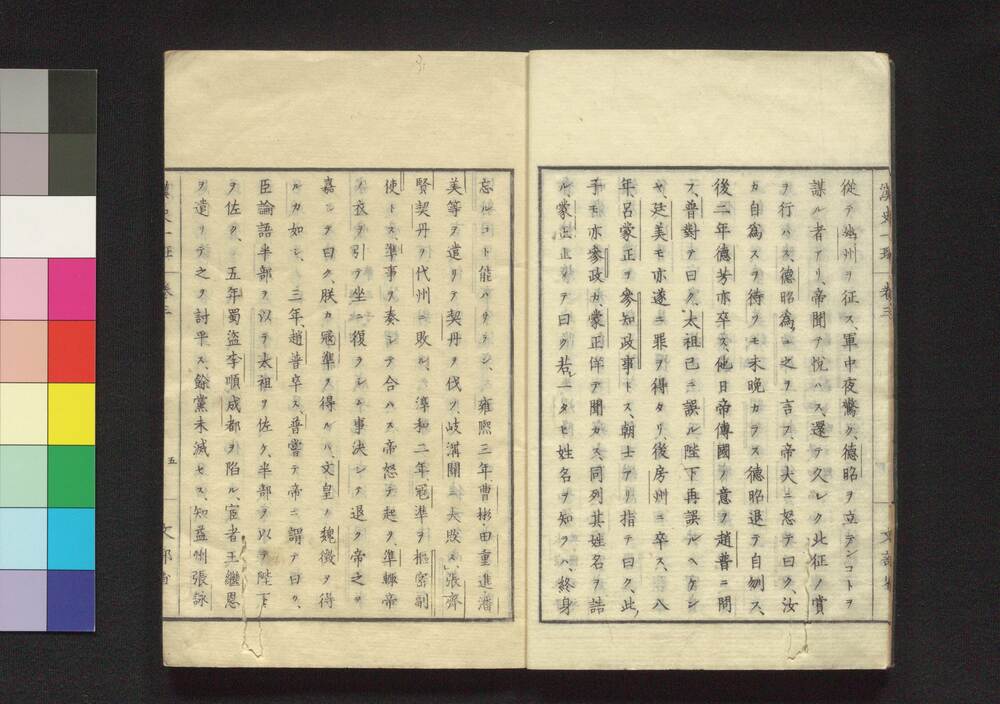 従テ幽州ヲ征ス、軍中夜驚ク、德昭ヲ立テンコトヲ
謀ル者アリ、帝聞テ悅ハス、還テ久レク此征ノ賞
ヲ行ハス、德昭為ニ之ヲ言フ、帝大ニ怒テ曰ク、汝
カ自為スヲ待ツモ未晩カラス德昭退テ自刎ス、
後二年德芳亦卒ス、他日帝傳國ノ意ヲ趙普ニ問
フ、普對テ曰ク、太祖已ニ誤ル陛下再誤ルヘケン
ヤ、廷美モ亦遂ニ罪ヲ得タリ、後房州ニ卒ス、八
年呂蒙正ヲ參知政事トス、朝士アリ指テ曰ク、此
子モ亦參政カ、蒙正佯テ聞カス同列其姓名ヲ詰
ル、蒙正止メテ曰ク若一タヒ姓名ヲ知ラハ、終身
忘ルコト能ハサラン、雍熙三年、曹彬田重進潘
美等ヲ遣リテ契丹ヲ伐ツ、岐溝關ニ大敗ス、張齊
賢契丹ヲ代州ニ敗ル、淳和二年、冦準ヲ樞密副
使トス、準事ヲ奏シテ合ハス帝怒テ起ツ、準輙帝
ノ衣ヲ引テ坐ニ復ラシメ事決シテ退ク帝之ヲ
嘉シテ曰ク、朕カ冦準ヲ得ルハ、文皇ノ魏徴ヲ得
ルカ如シ、三年、趙普卒ス、普嘗テ帝ニ謂テ曰ク、
臣論語半部ヲ以テ太祖ヲ佐ケ、半部ヲ以テ陛下
ヲ佐ク、五年蜀盗李順成都ヲ陷ル、宦者王繼恩
ヲ遣リテ之ヲ討平ス、餘黨未滅セス、知益州張詠
五